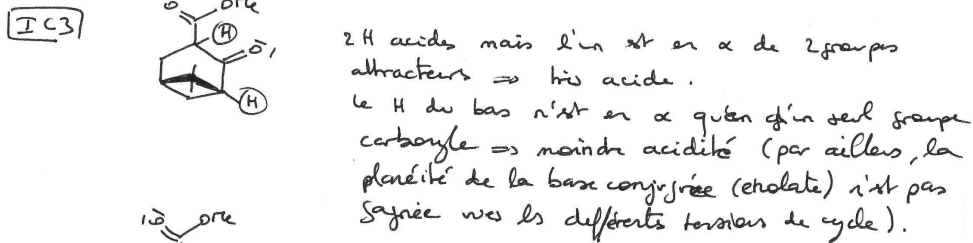 O OMe
IC3
H
O
2 H acides mais l'un est en α de 2 groupes
attracteurs ⇒ très acide.
H
Le H du bas n'est en α que d'un seul groupe
carbonyle ⇒ moindre acidité (par ailleurs, la
planéité de la base conjuguée (enolate) n'est pas
gagnée vues les différents tensions de cycle).
IO OMe